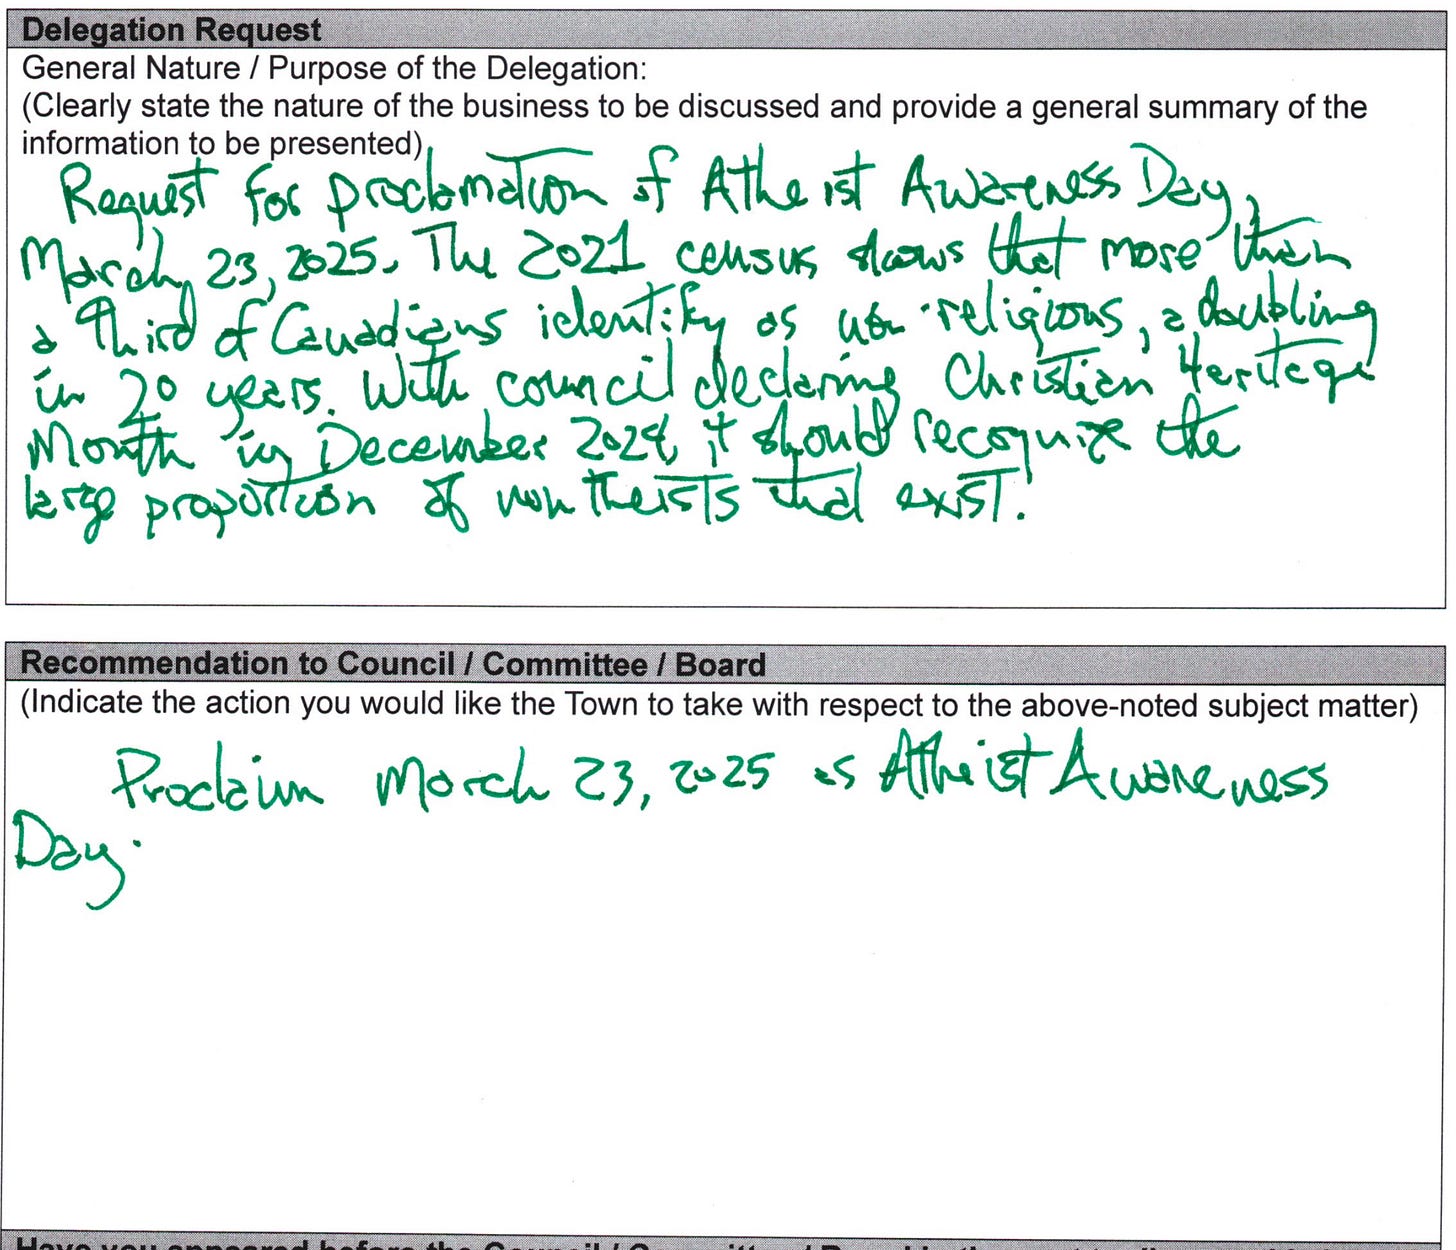 Delegation Request
General Nature / Purpose of the Delegation:
(Clearly state the nature of the business to be discussed and provide a general summary of the
information to be presented)
Request for proclamation of Atheist Awareness Day,
March 23, 2025. The 2021 census shows that more than
a third of Canadians identify as non-religious, a doubling
in 20 years. With council declaring Christian Heritage
Month in December 2024, it should recognize the
large proportion of non theists that exist.
Recommendation to Council / Committee / Board
(Indicate the action you would like the Town to take with respect to the above-noted subject matter)
Proclaim March 23, 2025 as Atheist Awareness
Day.